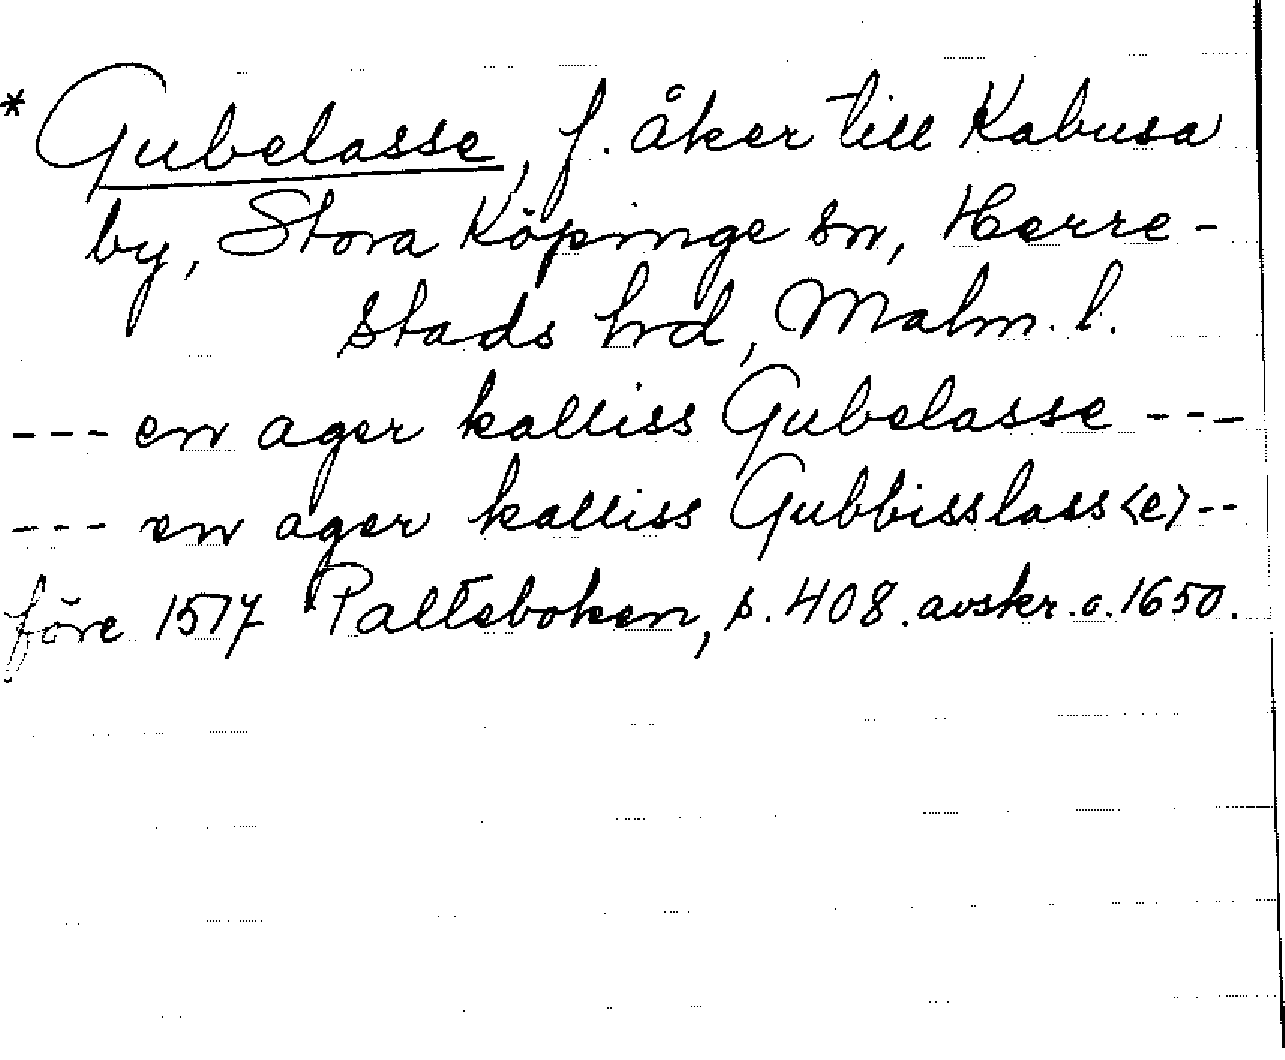 * Gubelasse, f. åker till Kabusa
by, Stora Köpinge sn, Herre-
stads hd, Malm. l.
--- en ager kalliss Gubelasse ---
--- en ager kalliss Gubbisslass<e> --
före 1517 Palteboken, s. 408. avskr. c. 1650.